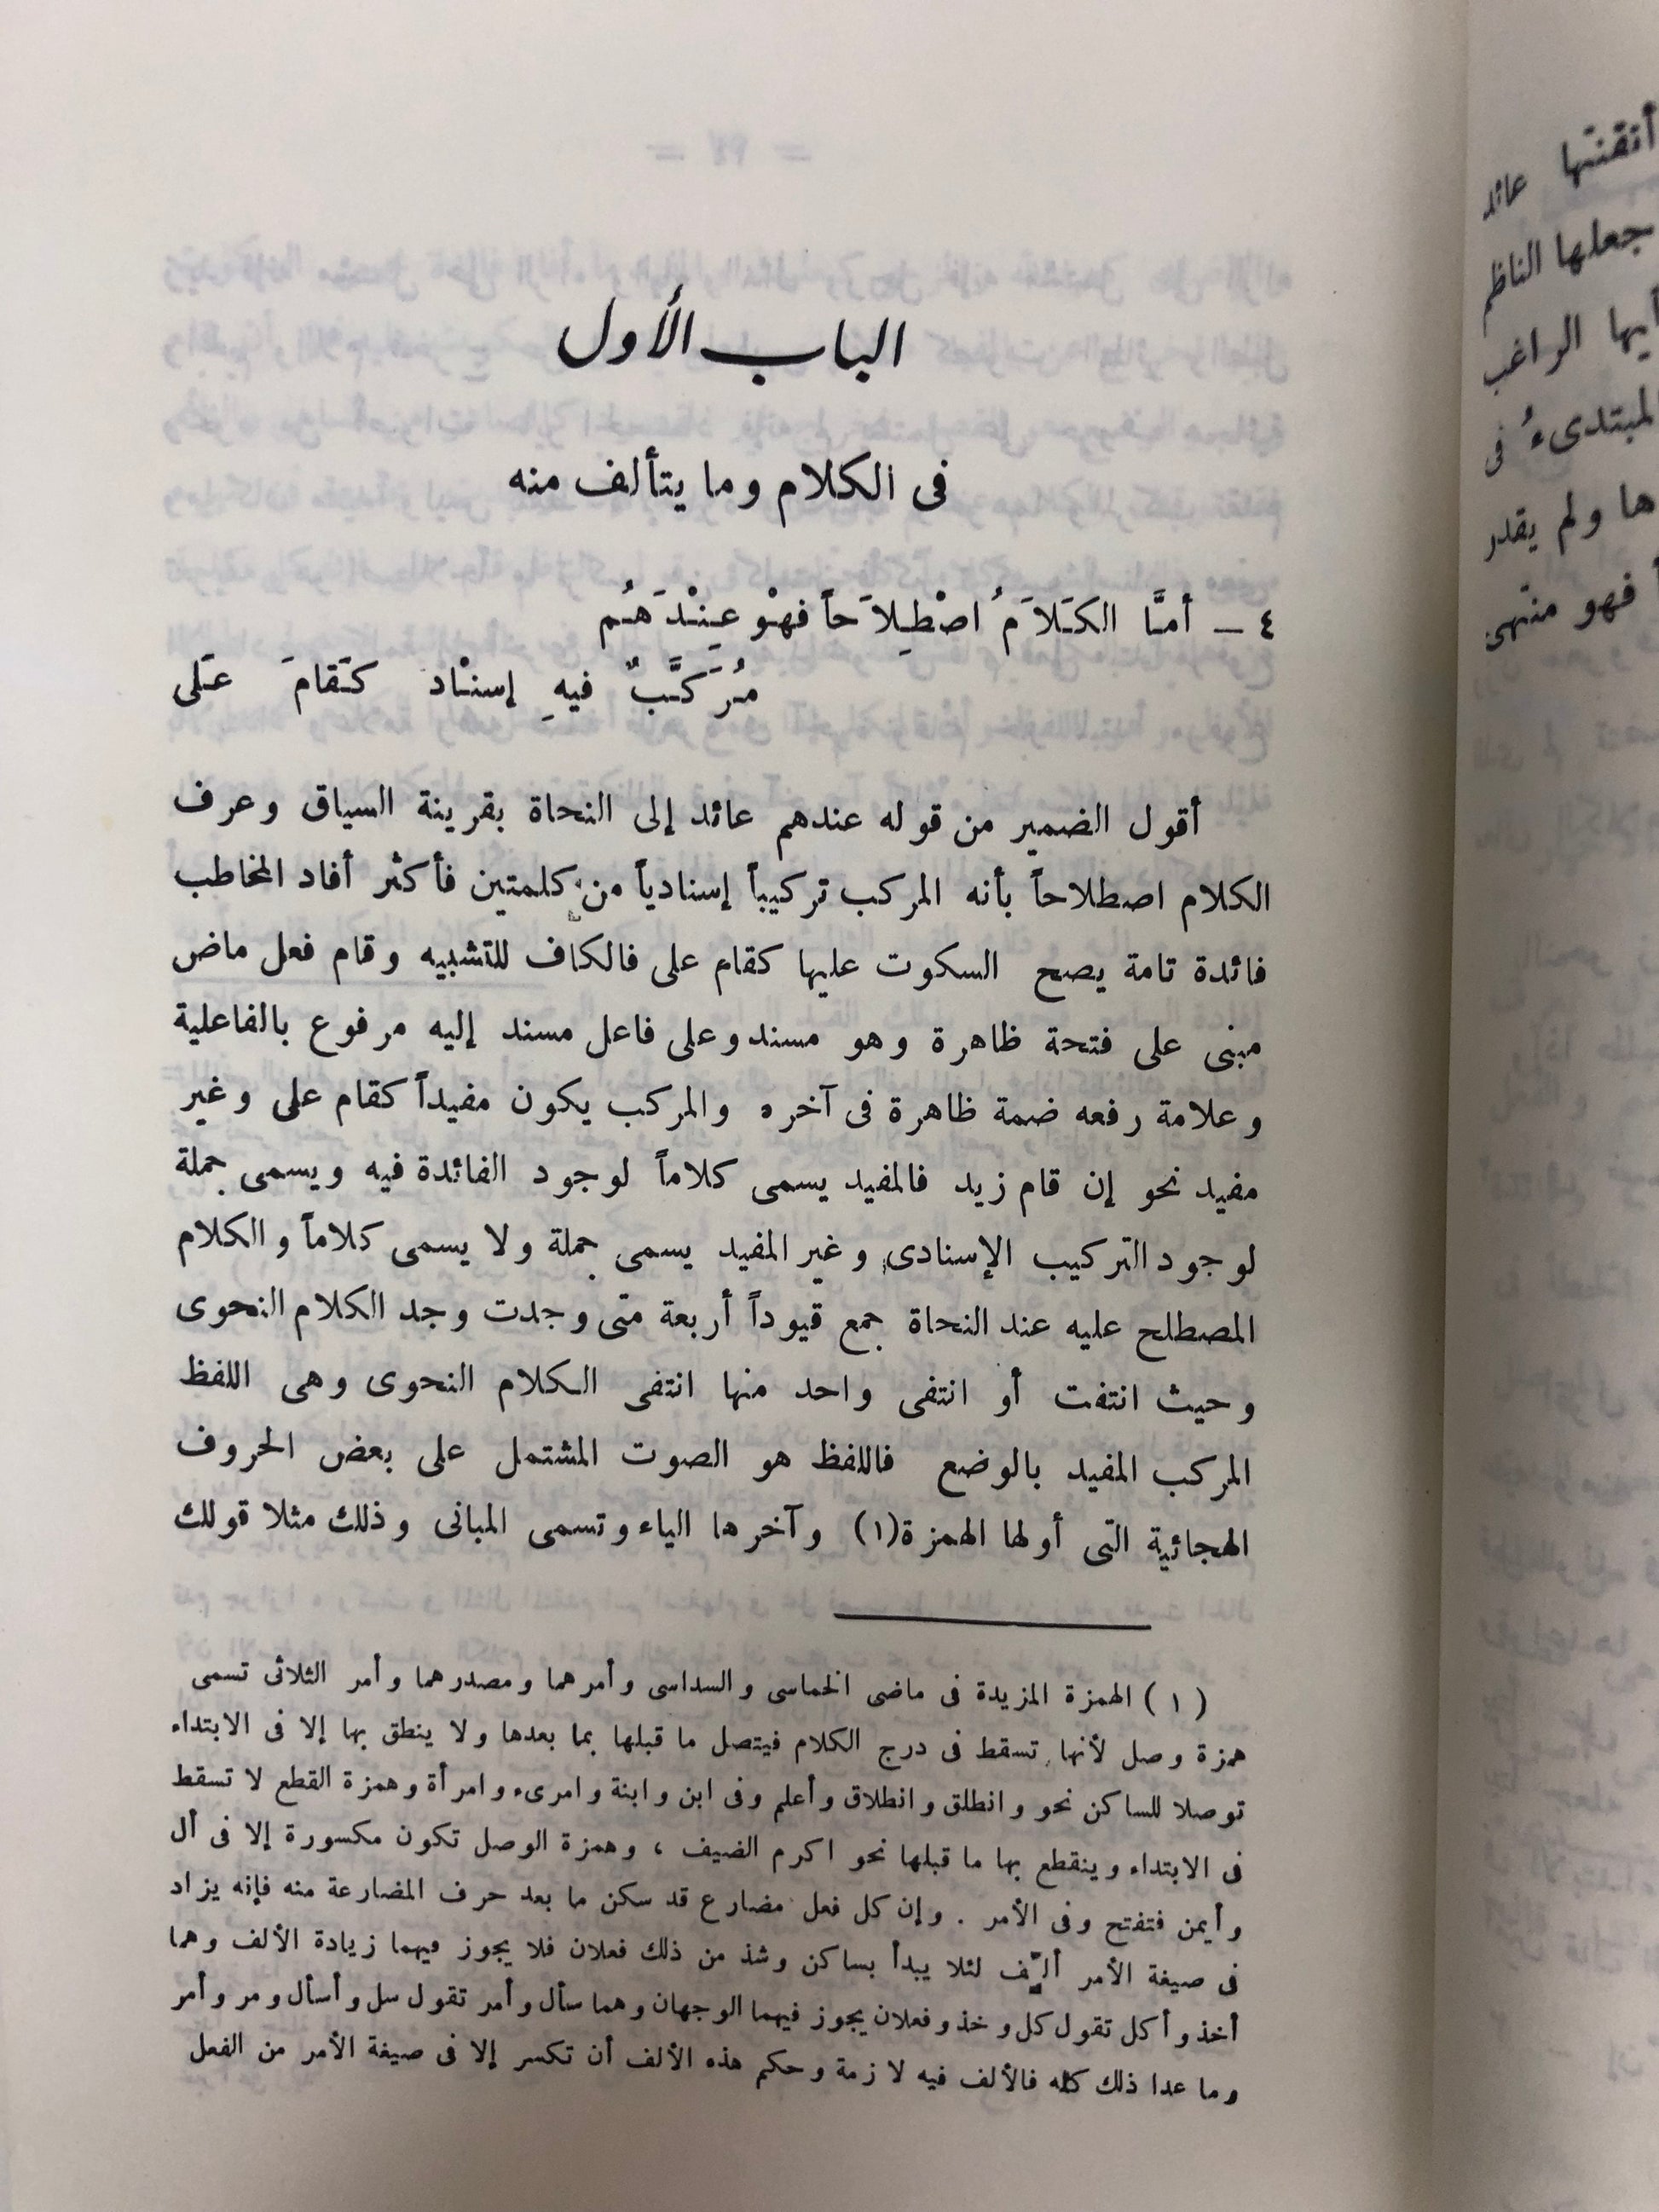 الباب الأول
فى الكلام وما يتألف منه
٤ — أمَّا الكَلاَمُ اصْطِلاَحاً فهْو عِنْدَهُم
مُرَكَّبٌ فيهِ إسنْاد كَقامَ عَلى
أقول الضمير من قوله عندهم عائد إلى النحاة بقرينة السياق وعرف
الكلام اصطلاحاً بأنه المركب تركيباً إسنادياً من كلمتين فأكثر أفاد المخاطب
فائدة تامة يصح السكوت عليها كقام على فالكاف للتشبيه وقام فعل ماض
مبنى على فتحة ظاهرة وهو مسند وعلى فاعل مسند إليه مرفوع بالفاعلية
وعلامة رفعه ضمة ظاهرة فى آخره والمركب يكون مفيداً كقام على وغير
مفيد نحو إن قام زيد فالمفيد يسمى كلاماً لوجود الفائدة فيه ويسمى جملة
لوجود التركيب الإسنادى وغير المفيد يسمى جملة ولا يسمى كلاماً والكلام
المصطلح عليه عند النحاة جمع قيوداً أربعة متى وجدت وجد الكلام النحوى
وحيث انتفت أو انتفى واحد منها انتفى الكلام النحوى وهى اللفظ
المركب المفيد بالوضع فاللفظ هو الصوت المشتمل على بعض الحروف
الهجائية التى أولها الهمزة(١) وآخرها الياء وتسمى المبانى وذلك مثلا قولك
(١) الهمزة المزيدة فى ماضى الخماسى والسداسى وأمرهما ومصدرهما وأمر الثلاثى تسمى
همزة وصل لأنها تسقط فى درج الكلام فيتصل ما قبلها بما بعدها ولا ينطق بها إلا فى الابتداء
توصلا للساكن نحو وانطلق وانطلاق وأعلم وفى ابن وابنة وامرىء وامرأة وهمزة القطع لا تسقط
فى الابتداء وينقطع بها ما قبلها نحو اكرم الضيف ، وهمزة الوصل تكون مكسورة إلا فى أل
وأيمن فتفتح وفى الأمر . وإن كل فعل مضارع قد سكن ما بعد حرف المضارعة منه فإنه يزاد
فى صيغة الأمر ألِف لئلا يبدأ بساكن وشذ من ذلك فعلان فلا يجوز فيهما زيادة الألف وهما
أخذ وأكل تقول كل وخذ وفعلان يجوز فيهما الوجهان وهما سأل وأمر تقول سل وأسأل ومر وأمر
وما عدا ذلك كله فالألف فيه لازمة وحكم هذه الألف أن تكسر إلا فى صيغة الأمر من الفعل
أتقنتها عائد
جعلها الناظم
الراغب
المبتدىءُ فى
ولم يقدر
فهو منتهى